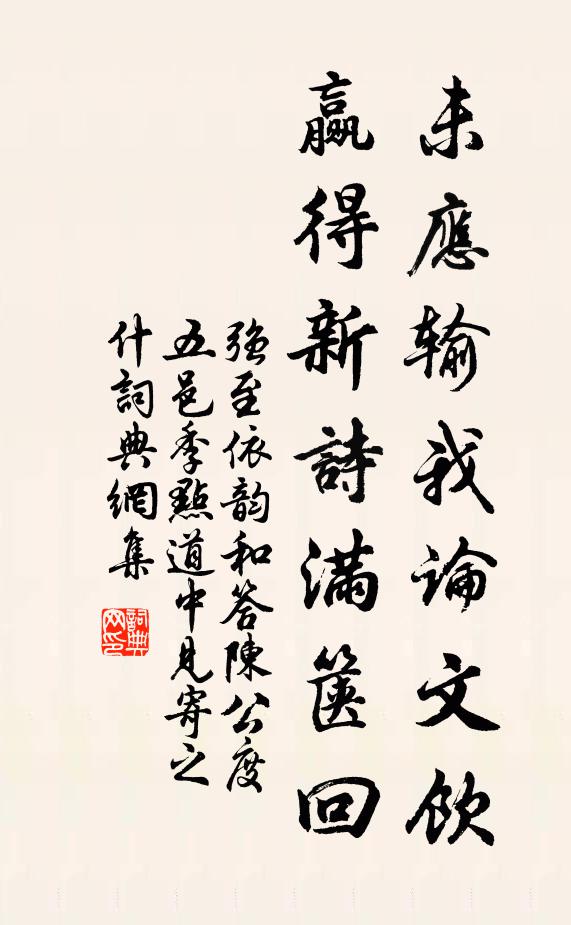 未應輸我論文飲
贏得新詩滿篋回
強至依韵和答陳公度
五邑季點道中見寄之
什詞典網集
詞典
网印